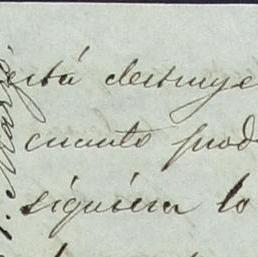 está destruye
cuanto prod
siquiera lo